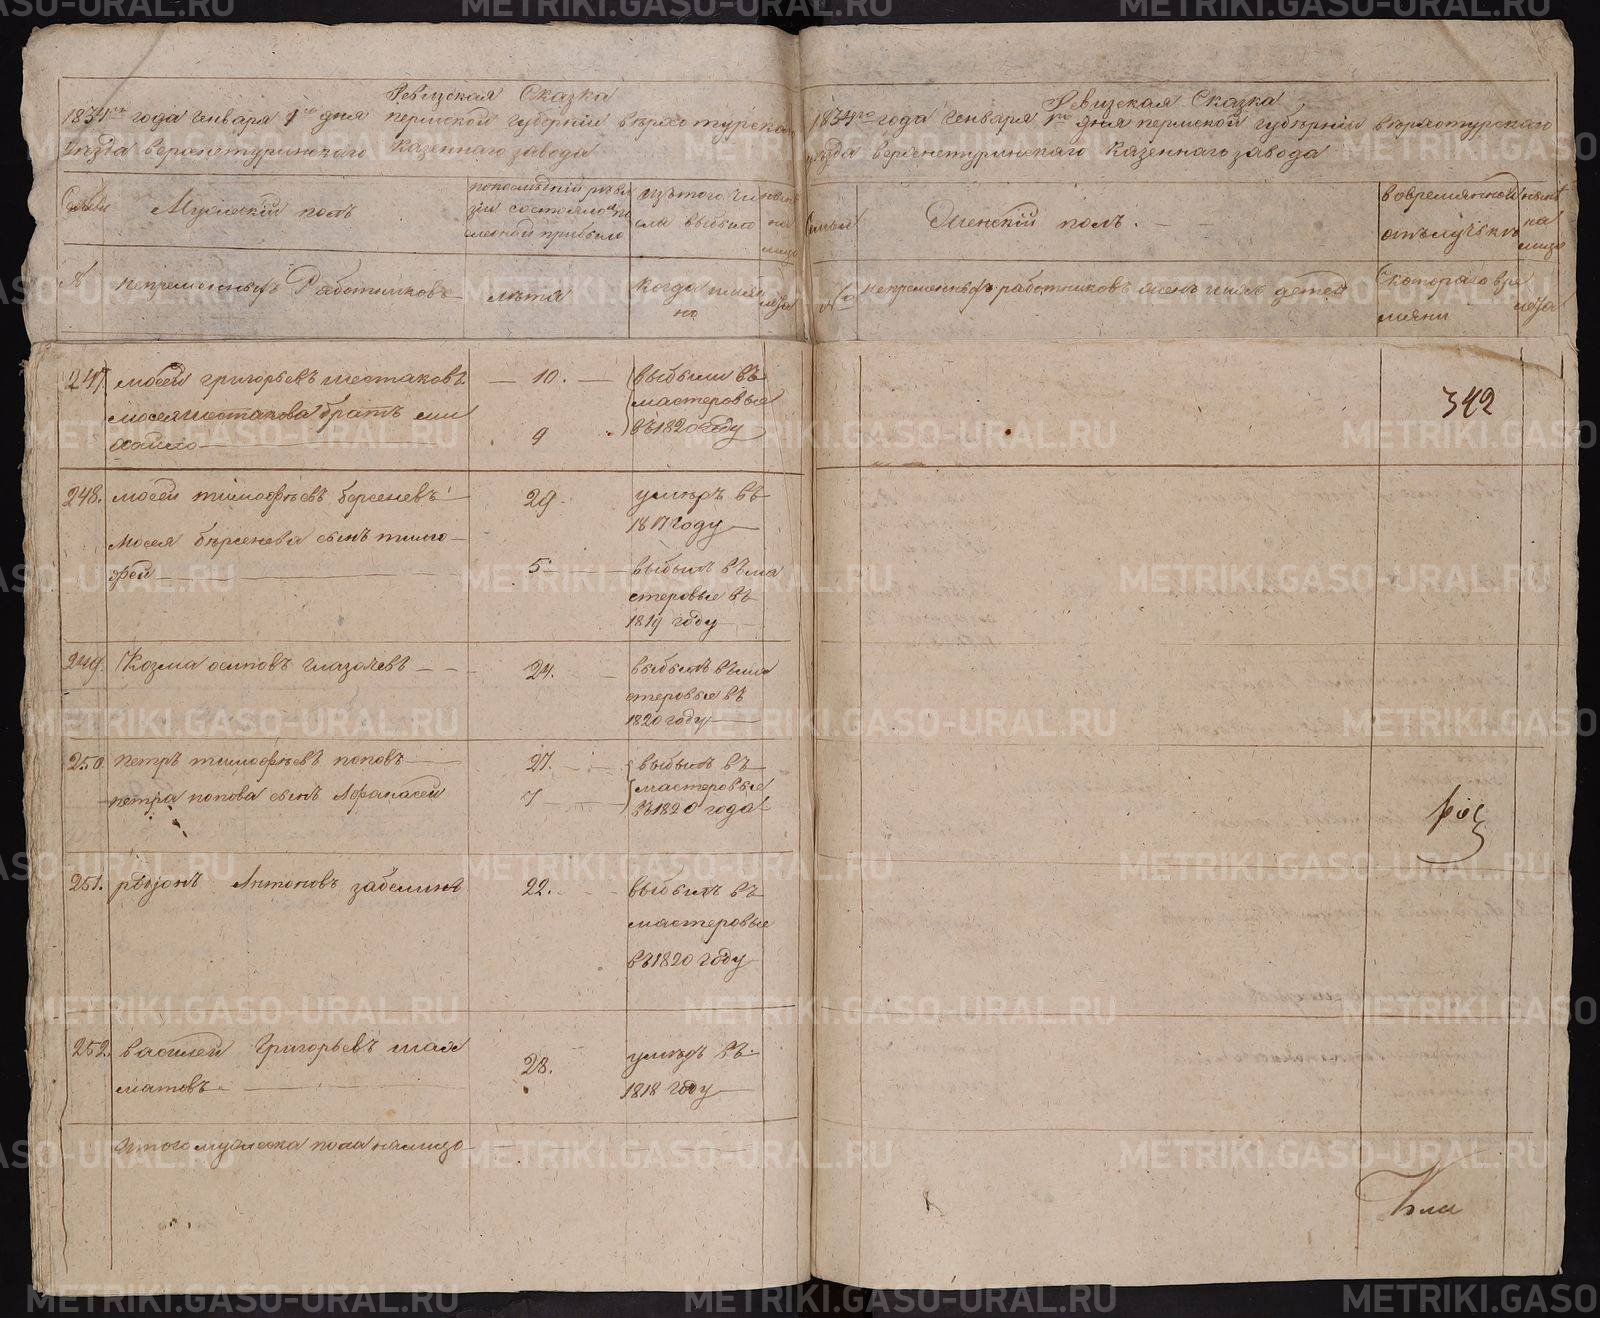 Ревизская Сказка
1834го года Генваря 1го дня пермской губернiи верхотурскаго
уезда верхнетуринскаго казеннаго завода
Семьи
Мужеский полъ
попоследнiй реви
зiи состояло и по
слеоной прибыло
изътого чи
сла выбыло
ныне
на
лицо
№
непременныхъ Работниковъ
лета
когда имян
но
лета
247.
мосей григорьевъ шестаковъ
10.
выбыли въ
мосея шестакова братъ ми
мастеровые
хайло
9
въ 1820 году
248.
мосей тимофеевъ берсеневъ
29.
умеръ въ
1817 году
мосея берсенева сынъ тимо
фей
5
выбылъ въ ма
стеровые въ
1819 году
249.
Козма осиповъ глазачевъ
24.
выбылъ въ ма
стеровые въ
1820 году
250.
петръ тимофеевъ поповъ
27.
выбылъ въ
петра попова сынъ Афанасей
7
мастеровые
въ 1820 года
251.
родiонъ Антоновъ забелинъ
22.
выбылъ въ
мастеровые
въ 1820 году
252.
василей Григорьевъ шах
матовъ
28.
умеръ въ
1818 году
Итого мужеска пола налицо
Ревизская Сказка
1834го года Генваря 1го дня пермской губернiи верхотурскаго
уезда верхнетуринскаго казеннаго завода
семьи
Женскiй полъ.
вовремянной
отълучке
ныне
на
лицо
№
непременныхъ работниковъ жен и ихъ детей
Скотораго вре
мяни
лета
342
METRIKI.GASO-URAL.RU